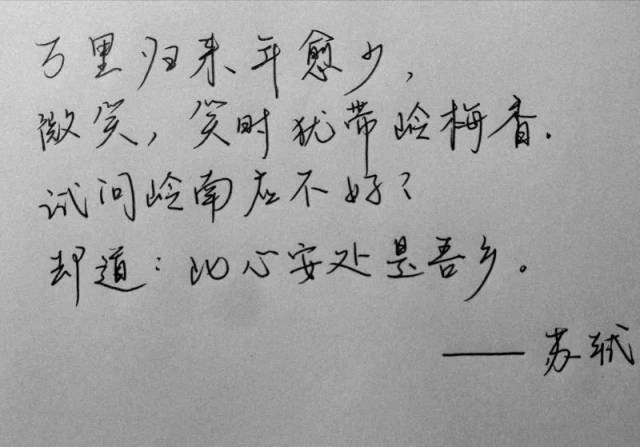 万里归来年愈少，
微笑，笑时犹带岭梅香．
试问岭南应不好？
却道：此心安处是吾乡。
—— 苏轼